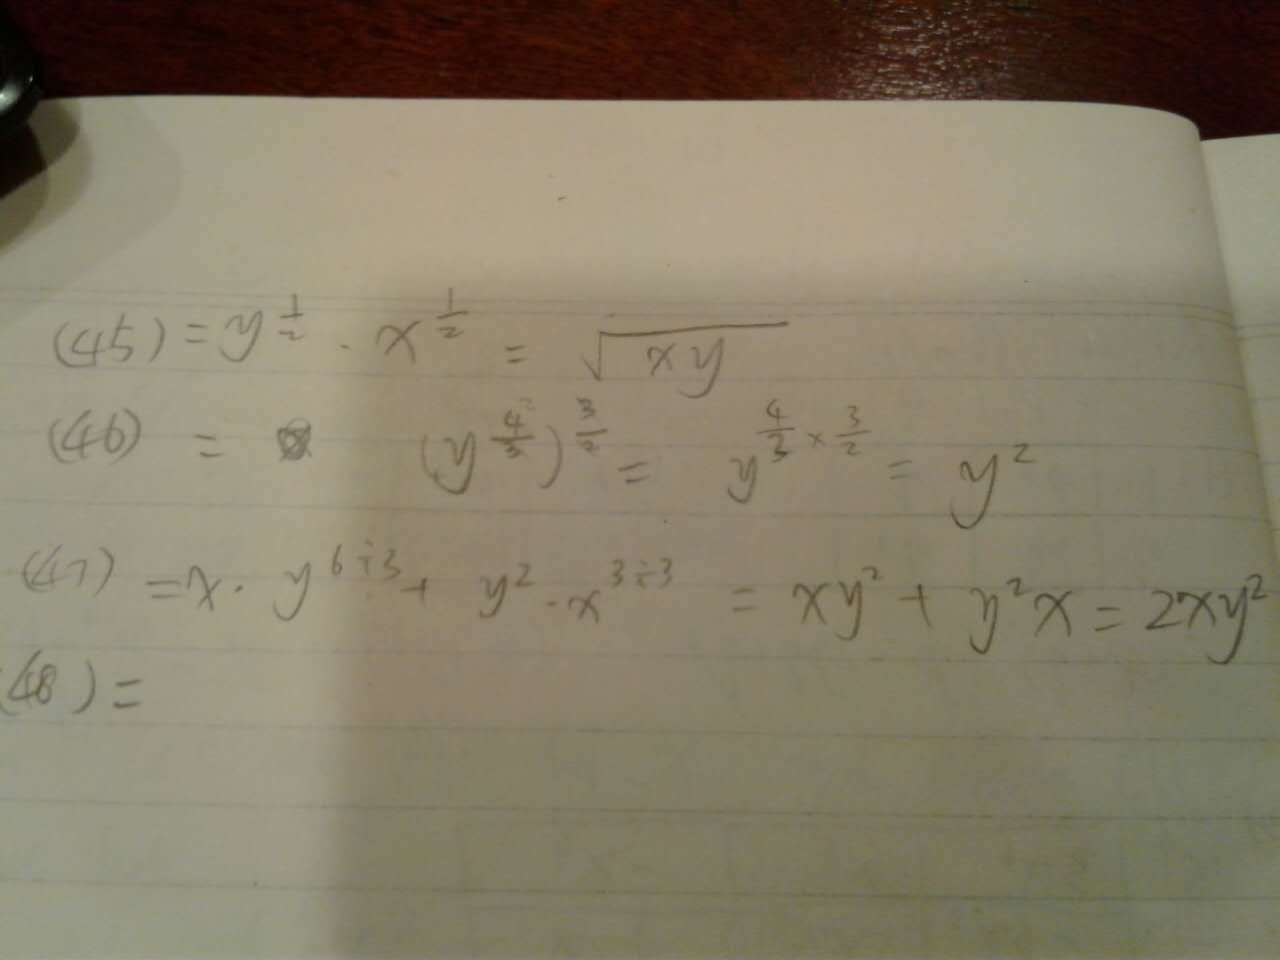 (45) = y^{\frac{1}{2}} \cdot x^{\frac{1}{2}} = \sqrt{xy}
(46) = (y^{\frac{4}{3}})^{\frac{3}{2}} = y^{\frac{4}{3} \times \frac{3}{2}} = y^2
(47) = x \cdot y^{6÷3} + y^2 \cdot x^{3÷3} = xy^2 + y^2x = 2xy^2
(48) =